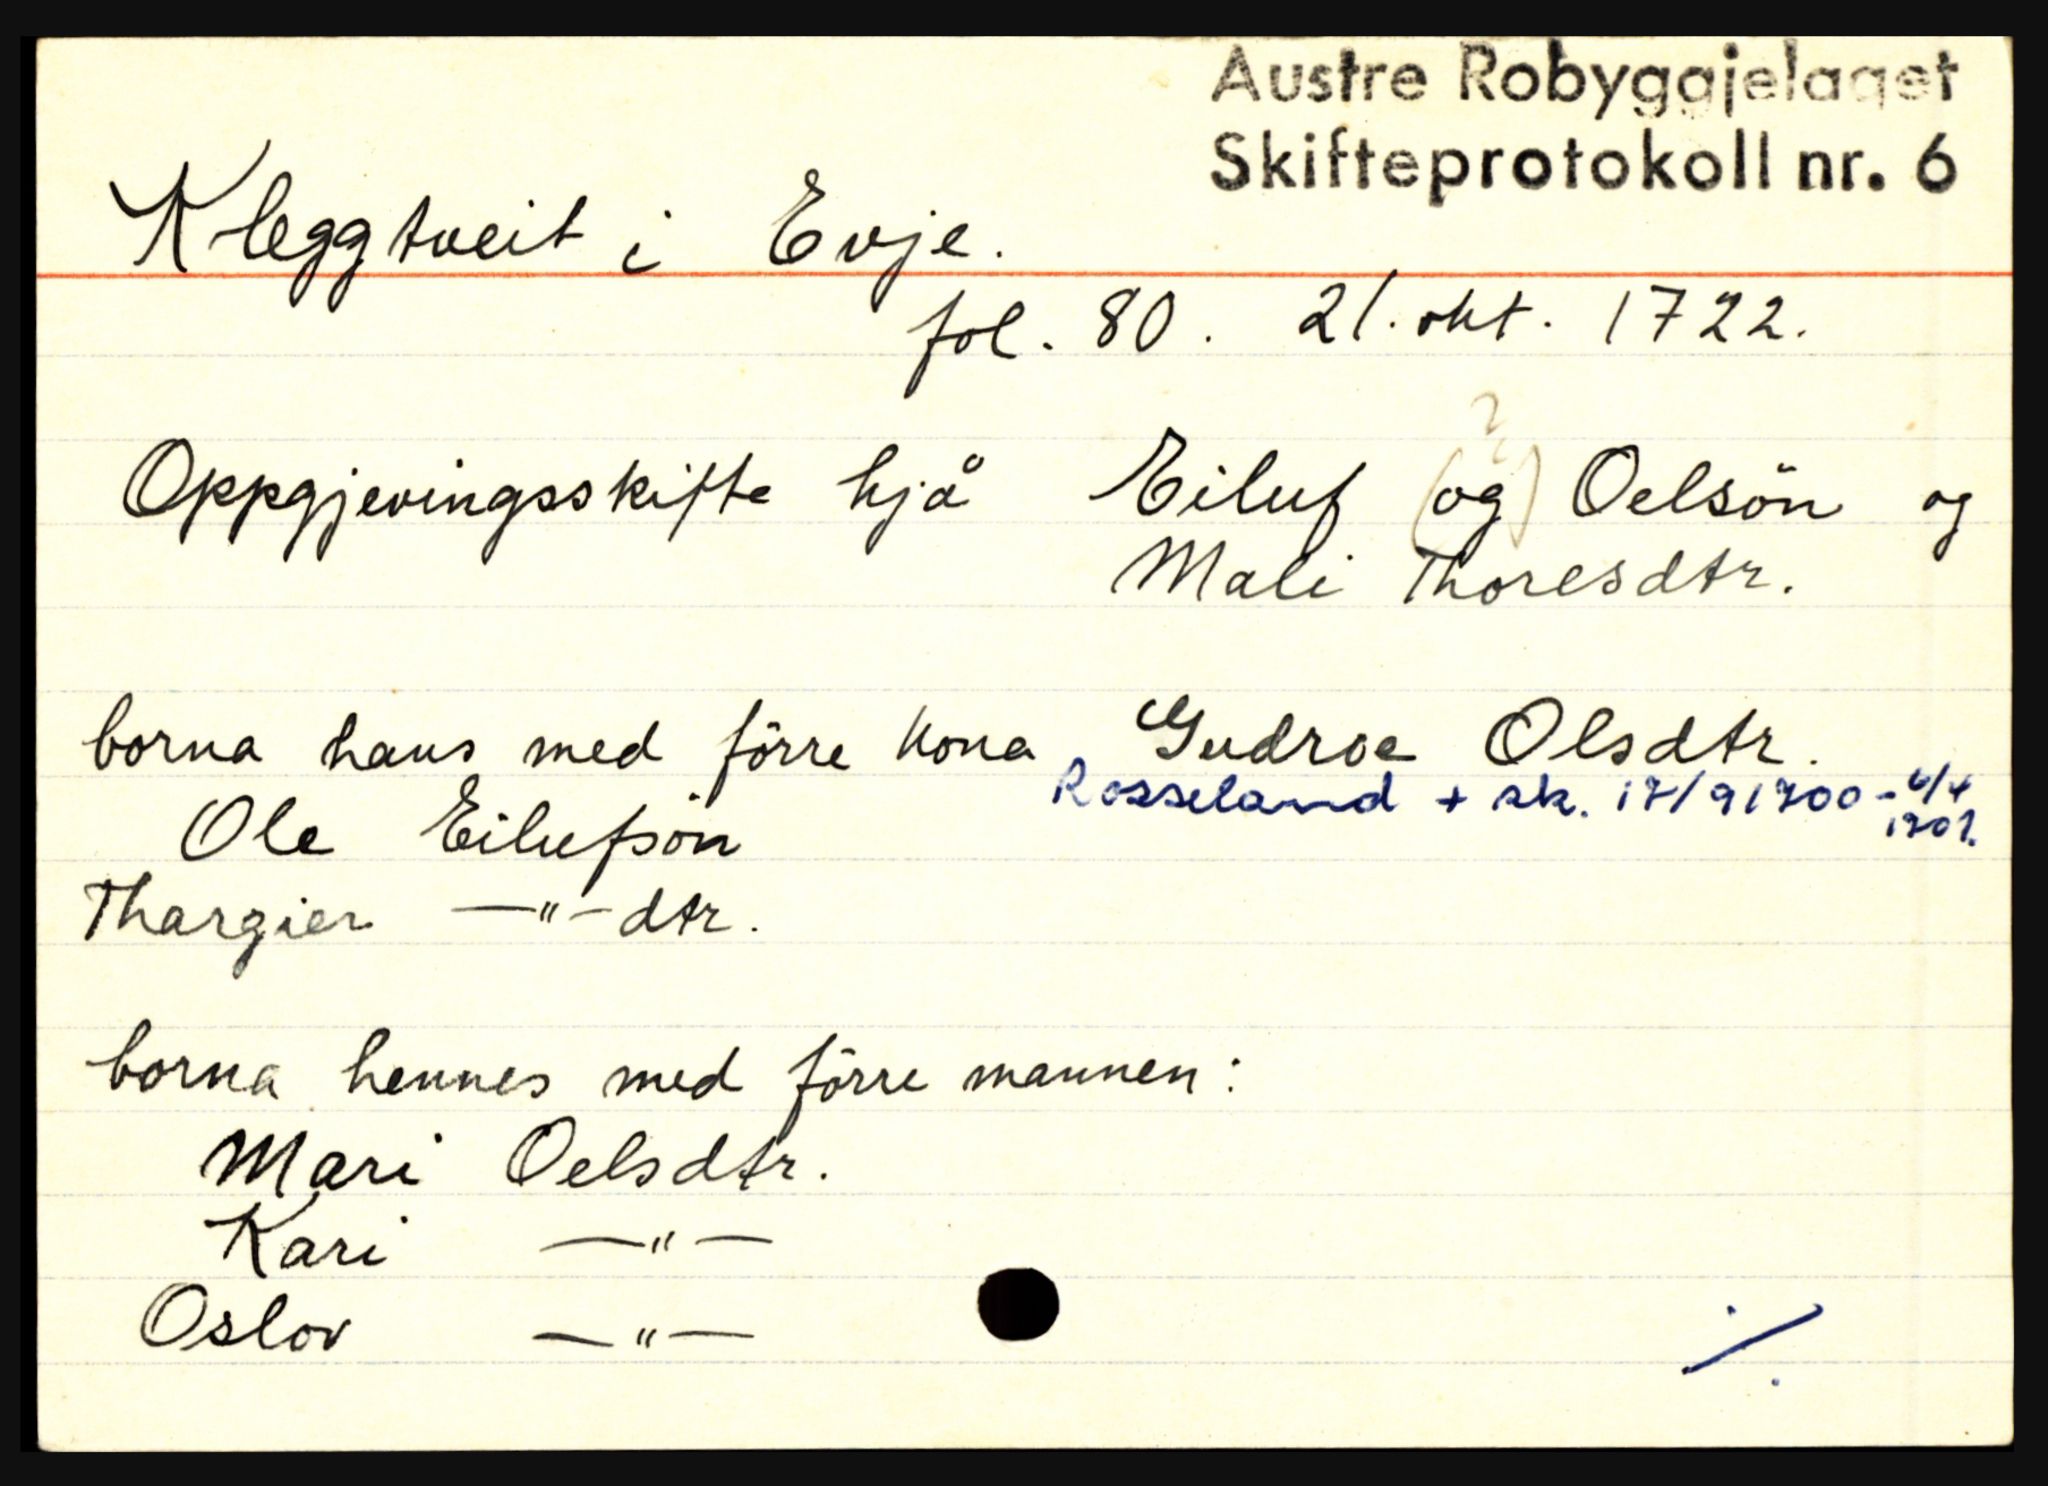 Austre Robyggjelaget
Skifteprotokoll nr. 6
Kleggtveit i Evje.
fol. 80. 21. okt. 1722.
?
Oppgjevingsskifte hjå Eiluf (og) Oelsön og
Mali Thoresdtr.
borna hans med förre kona Gudroe Olsdtr.
Rosseland + sk. 17/9 1700 - 6/4
1701.
Ole Eilufsön
Thargier —"— dtr.
borna hennes med förre mannen:
Mari Oelsdtr.
Kari —"—
Oslov —"—